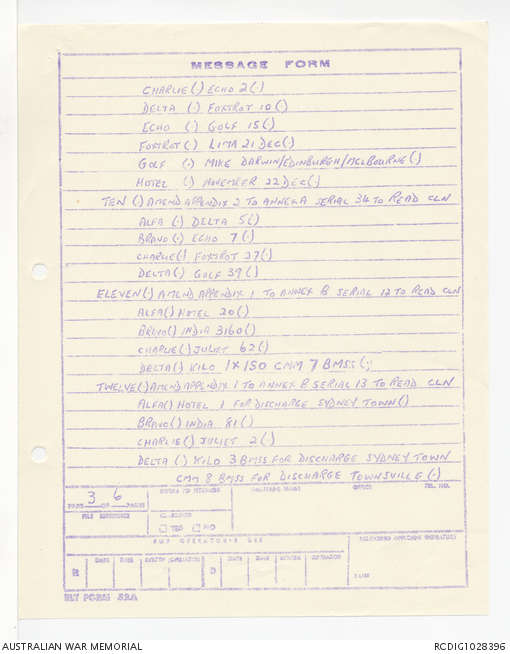 MESSAGE FORM
CHARLIE (.) ECHO 2 (.)
DELTA (.) FOXTROT 10 (.)
ECHO (.) GOLF 15 (.)
FOXTROT (.) LIMA 21 DEC (.)
GOLF (.) MIKE DARWIN/EDINBURGH/MELBOURNE (.)
HOTEL (.) NOVEMBER 22 DEC (.)
TEN (.) AMEND APPENDIX 2 TO ANNEX A SERIAL 34 TO READ CLN
ALFA (.) DELTA 5 (.)
BRAVO (.) ECHO 7 (.)
CHARLIE (.) FOXTROT 27 (.)
DELTA (.) GOLF 39 (.)
ELEVEN (.) AMEND APPENDIX 1 TO ANNEX B SERIAL 12 TO READ CLN
ALFA () HOTEL 20 ()
BRAVO () INDIA 3160 ()
CHARLIE (.) JULIET 62 (.)
DELTA () KILO 1 X 150 CMM 7 BMSS (.)
TWELVE () AMEND APPENDIX 1 TO ANNEX B SERIAL 13 TO READ CLN
ALFA () HOTEL 1 FOR DISCHARGE SYDNEY TOWN ()
BRAVO () INDIA 81 ()
CHARLIE () JULIET 2 (.)
DELTA () KILO 3 BMSS FOR DISCHARGE SYDNEY TOWN
CMM 8 BMSS FOR DISCHARGE TOWNSVILLE (.)
PAGE 3 OF 6 PAGES
OFFICE
TEL. NO.
FILE REFERENCE
YES NO
FOR OPERATOR'S USE
R
DATE
TIME
SYSTEM
OPERATOR
D
DATE
TIME
SYSTEM
OPERATOR
AUSTRALIAN WAR MEMORIAL
RCDIG1028396